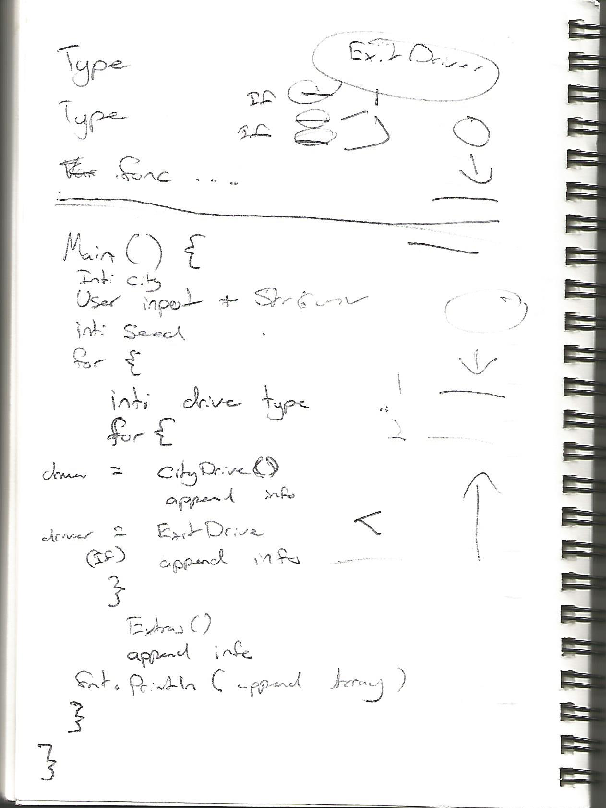 Type
Exit Driver
IF
Type
IF
func ....
Main () {
Inti city
User input + Str Conv
inti seed
for {
inti drive type
for {
1
2
driver = cityDrive()
append info
driver = Exit Drive
<
(IF) append info
}
Extras()
append info
fmt. Println ( append Array )
}
}